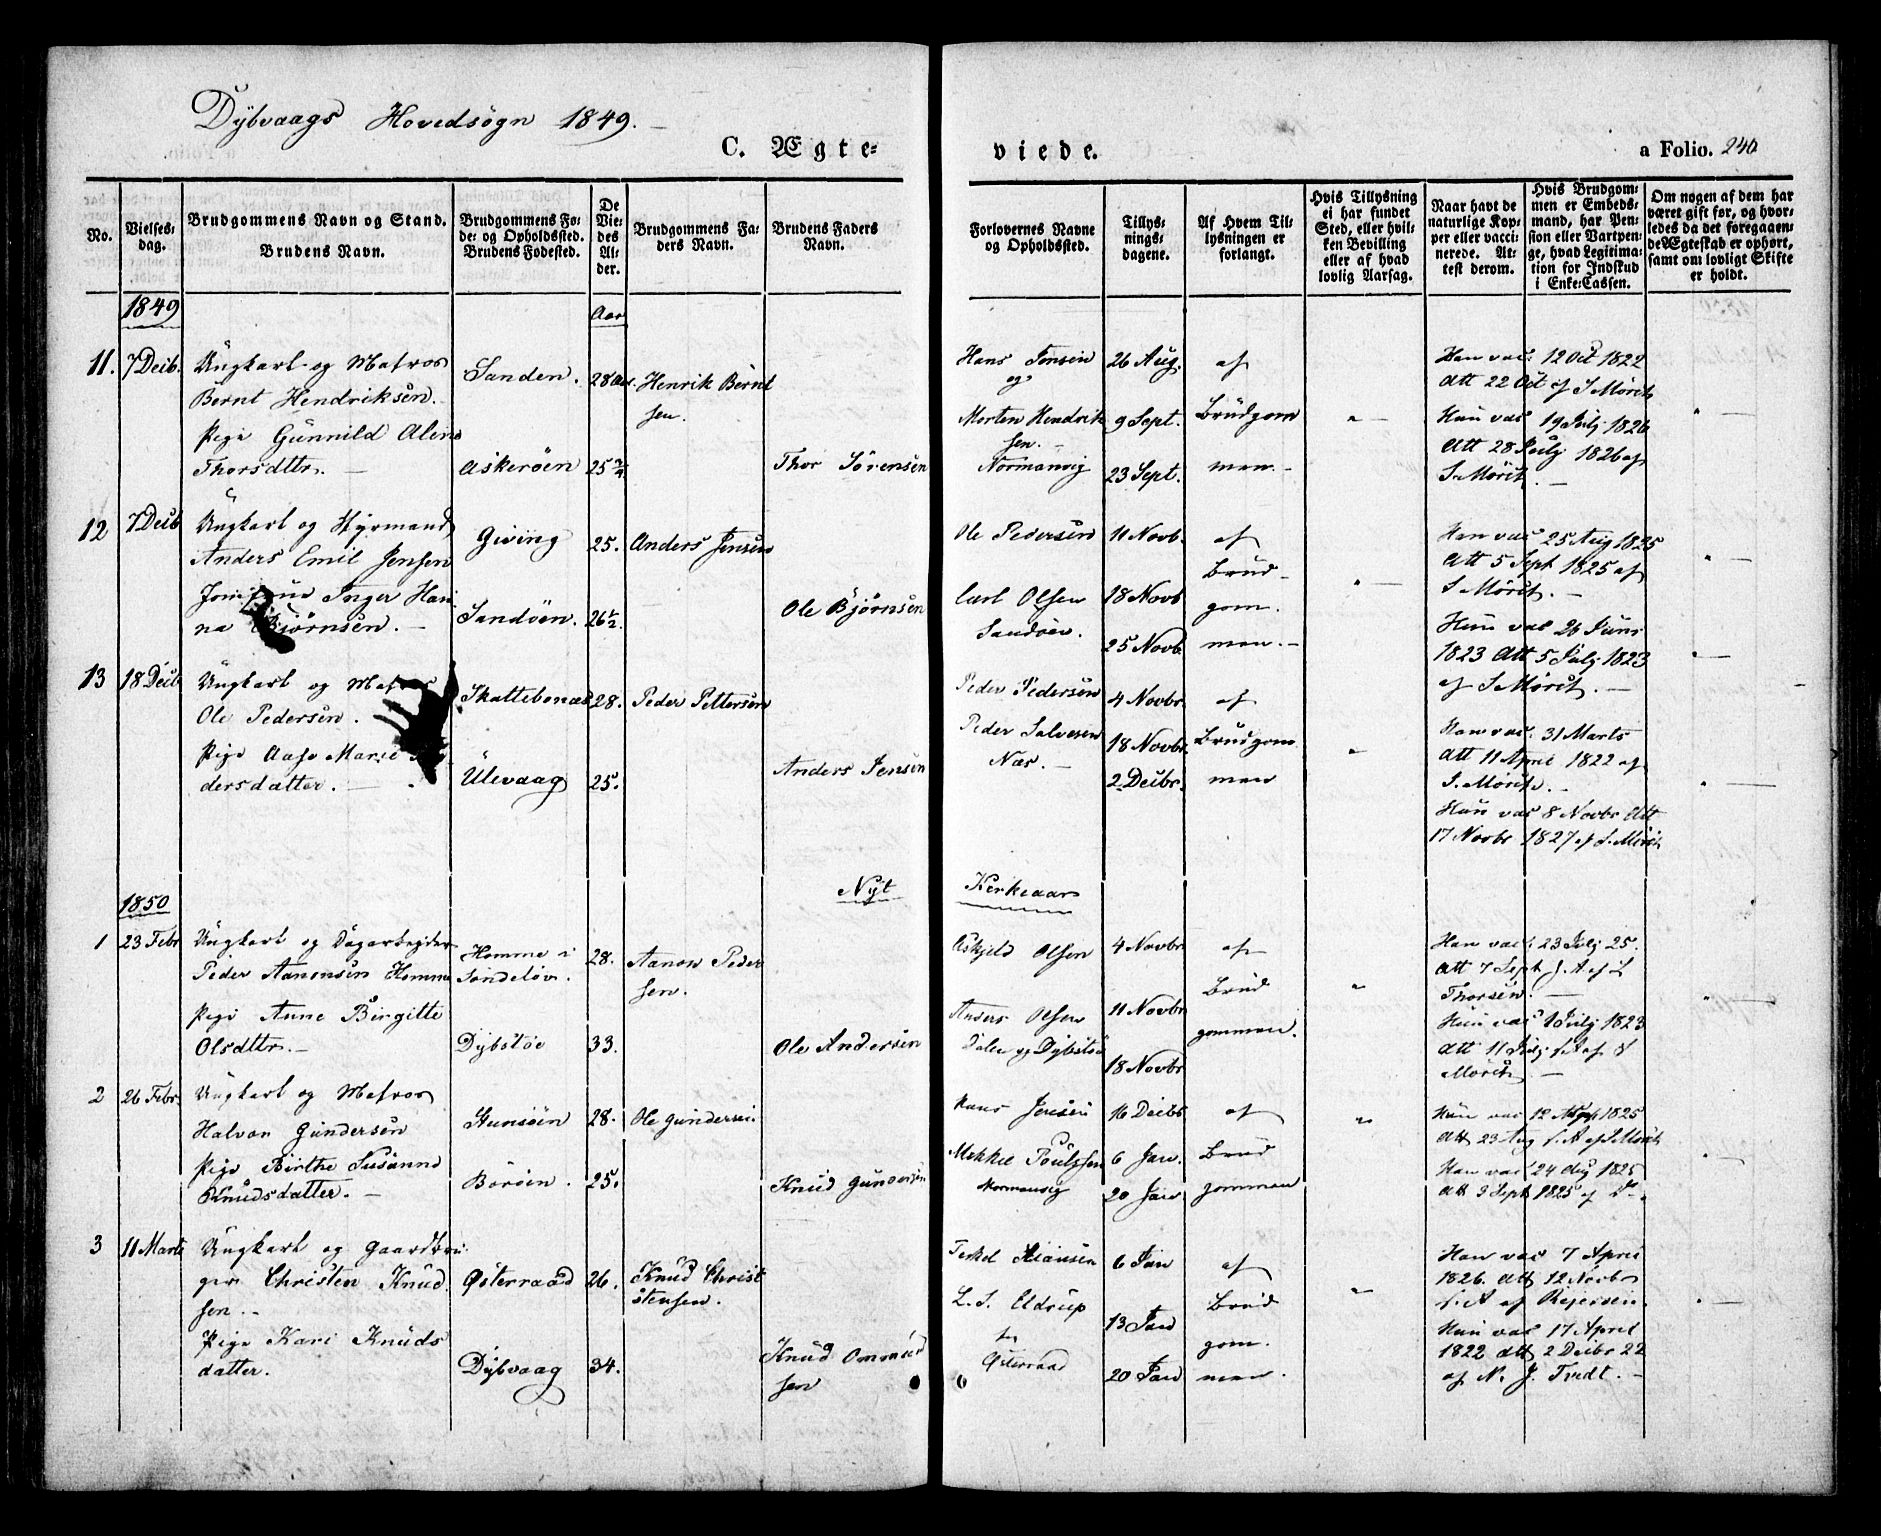 Dÿbvaags Hovedsøgn 1849.
C. Ægte-
viede.
a Folio. 240
No.
Vielses-
dag.
Brudgommens Navn og Stand.
Brudens Navn.
Brudgommens Fø-
de- og Opholdssted.
Brudens Fødested.
De
Vie-
des
Al-
der.
Brudgommens Fa-
ders Navn.
Brudens Faders
Navn.
Forlovernes Navne
og Opholdssted.
Tillys-
nings-
dagene.
Af Hvem Til-
lysningen er
forlangt.
Hvis Tillysning
ei har fundet
Sted, eller hvil-
ken Bevilling
eller af hvad
lovlig Aarsag.
Naar havt de
naturlige Kop-
per eller vacci-
nerede. At-
test derom.
Hvis Brudgom-
men er Embeds-
mand, har Pen-
sion eller Vartpen-
ge, hvad Legitima-
tion for Indskud
i Enke-Cassen.
Om nogen af dem har
været gift før, og hvor-
ledes da det foregaaen-
de Ægteskab er ophørt,
samt om lovligt Skifte
er holdt.
1849
Aar
11. 7 Decb. Ungkarl og Matros
Bernt Hendriksen.
Sanden. 28 Aar. Henrik Bernt
sen.
Pige Gunnild Aline
Thorsdttr.
Askerøen 25 3/4 Thor Sørensen
Hans Jensen
og
Morten Hendrik
sen.
Normanvig
26 Aug.
9 Sept.
23 Sept.
af
Brudgom
men.
Han vac: 12 Oct 1822
Att 22 Oct af S Møritz
Hun vac 19 July 1826
Att 28 July 1826 af
S. Møritz.
12 7 Decb Ungkarl og Styrmand
Anders Emil Jensen
Giving 25. Anders Jensen
Jomfrue Inger Han
na Bjørnsen.
Sandøen. 26 1/2. Ole Bjørnsen
Ole Pedersen
Carl Olsen
Sandøen.
11 Novb.
18 Novb
25 Novb.
af
Brud-
gom.
men.
Han vac 25 Aug 1825
Att 5 Sept 1825 af
S Møritz.
Hun vac 26 Juni
1823 Att 5 July 1823
af S Møritz.
13 18 Decb Ungkarl og Matros
Ole Pedersen.
Skattebonæs 28. Peder Pettersen
Pige Aase Marie
dersdatter.
Ulevaag 25. Anders Jensen
Peder Pedersen
Peder Salvesen
Næs.
4 Novbr.
18 Novbr.
2 Decbr.
af
Brudgom
men
Han vac. 31 Marts
Att 11 April 1822 af
S. Møritz.
Hun vac 8 Novbr Att
17 Novbr 1827 af S. Møritz
Nyt
Kirkeaar
1850
1 23 Febr Ungkarl og Dagarbejder
Peder Aanonsen Homme
Homme i
Søndeløv.
28. Aanon Peder
sen.
Pige Anne Birgitte
Olsdttr.
Dybstøe 33. Ole Andersen
Askjeld Olsen
Anders Olsen
Dalen og Dybstøe
4 Novbr
11 Novbr
18 Novbr
af
Brud
gommen.
Han vac: 23 July 25.
Att 7 Sept s. A af L
Thorsen.
Hun vac 1 July 1823
Att 11 July s. A af S
Møritz
2 26 Febr Ungkarl og Matros
Halvor Gundersen
Stunsøen 28. Ole Gundersen
Pige Birthe Susanne
Knudsdatter.
Borøen. 25. Knud Gundersen
Hans Jensen
Mekkel Poulssen
Normanvig
16 Decbr
6 Jan.
20 Jan
af
Brud
gommen
Hun vac 12 Aug 1825
Att 23 Aug s. A af S. Møritz
Han vac 24 Aug 1825
Att 3 Sept 1825 af D-
3 11 Marts Ungkarl og Gaardbru
ger Christen Knud
sen.
Østeraad 26. Knud Christ
stensen.
Pige Kari Knuds
datter.
Dybvaag 34. Knud Ommund
sen
Terkel Hansen
L. S. Eldrup
Østeraad
6 Jan
13 Jan
20 Jan
af
Brud
gom.
men.
Han vac 7 April
1826. Att 12 Novbr
s. A af Rejersen.
Hun vac 17 April
1822 Att 2 Decbr 22
af N. J. Tvedt.